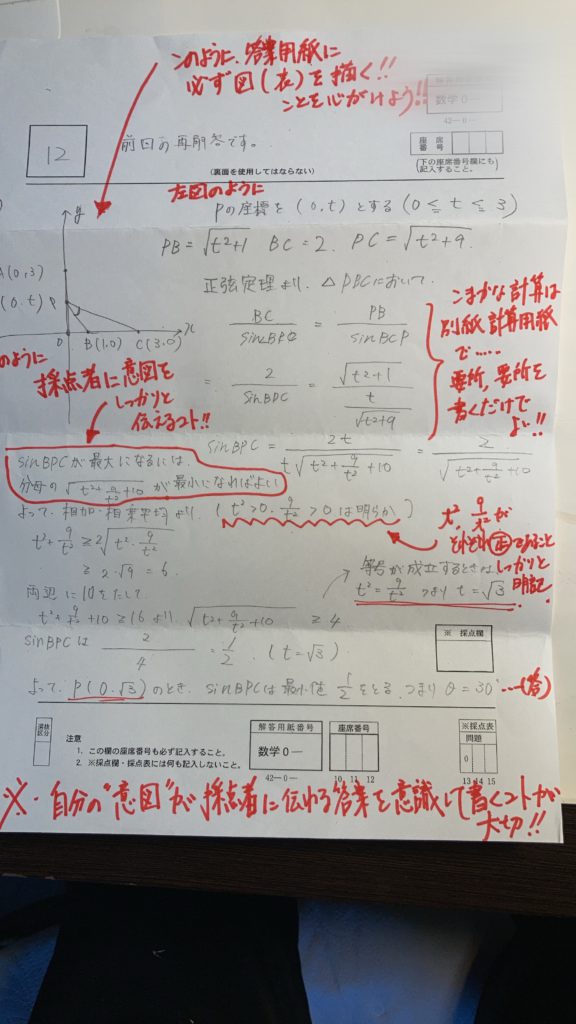 このように、答案用紙に
必ず図(表)を描く!!
ことを心がけよう!!
解答用紙番号
数学0ー
42ー0ー
12
前回の再解答です。
(裏面を使用してはならない)
座席番号
(下の座席番号欄にも)
記入すること。
左図のように
Pの座標を(0,t)とする(0≦t≦3)
y
PB=√t²+1 BC=2. PC=√t²+9.
A(0,3)
正弦定理より、△PBCにおいて.
(0,t) P
BC/sin∠BPC = PB/sinBCP
こまかな計算は
別紙計算用紙
で……
要所,要所を
書くだけで
よい!!
O B(1,0) C(3,0) x
= 2/sinBPC = √t²+1 / t/√t²+9
のように
採点者に意図を
しっかりと
伝えるコト!!
sinBPC = 2t / t√t²+9/t²+10 = 2/√t²+9/t²+10
sinBPCが最大になるには、
分母の√t²+9/t²+10が最小になればよい
よって、相加・相乗平均より、(t²>0. 9/t²>0は明らか)
t², 9/t²が
それぞれ正であること
しっかりと
明記
t²+9/t²≧2√t²・9/t²
≧2・√9=6.
等号が成立するときは
t²=9/t² つまり t=√3
両辺に10をたして.
t²+9/t²+10≧16より、√t²+9/t²+10≧4
sinBPCは 2/4=1/2. (t=√3)
※ 採点欄
よって、P(0.√3)のとき、sinBPCは最小値1/2をとる つまりθ=30° …(答)
選抜区分
注意
1. この欄の座席番号も必ず記入すること。
2. ※採点欄・採点表には何も記入しないこと。
解答用紙番号
数学0ー
42ー0ー
座席番号
10 11 12
※採点表
問題
0
13 14 15
※・自分の"意図"が採点者に伝わる答案を意識して書くコトが
大切!!